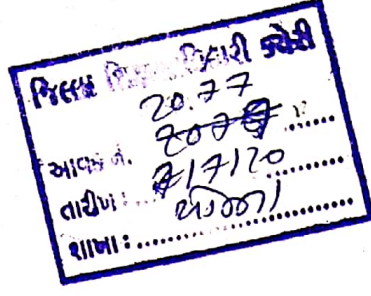 જિલ્લા શિક્ષણાધિકારી કચેરી
20.77
આવક નં. 2077
તારીખ : 7/7/20
શાખા :